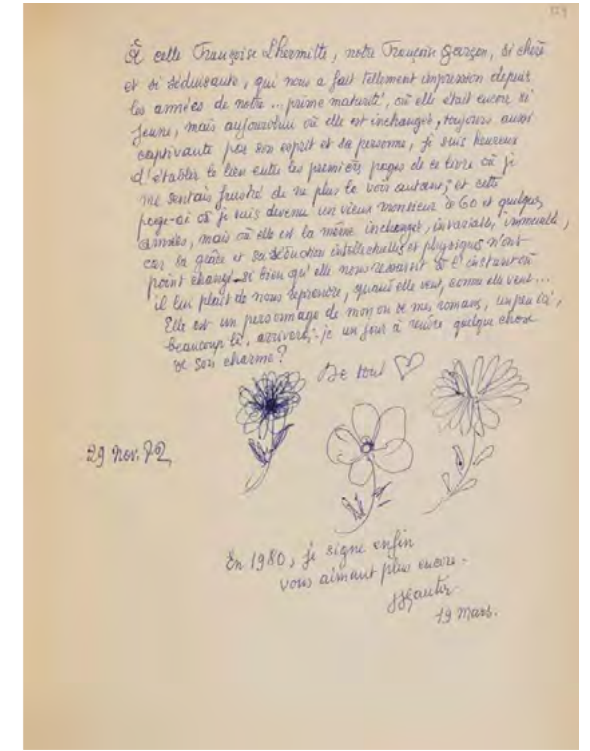 À cette Françoise Lhermitte, notre Françoise Garçon, si chère
et si séduisante, qui nous a fait tellement impression depuis
les années de notre ... prime maturité, où elle était encore si
jeune, mais aujourd'hui où elle est inchangée, toujours aussi
captivante par son esprit et sa personne, je suis heureux
d'établir le lien entre les premières pages de ce livre où je
me sentais frustré de ne plus la voir autant, et cette
page-ci où je suis devenu un vieux monsieur de 60 et quelques
années, mais où elle est la même inchangée, invariable, immuable,
car sa grâce et sa séduction intellectuelles et physiques n'ont
point changé si bien qu'elle nous ressaisit à l'instant où
il lui plaît de nous reprendre, quand elle veut, comme elle veut...
Elle est un personnage de mon ou de mes romans, un peu ici,
beaucoup là, arriverai-je un jour à rendre quelque chose
de son charme?
De tout
29 Nov. 72
En 1980, je signe enfin
vous aimant plus encore.
JJGautier
19 Mars.